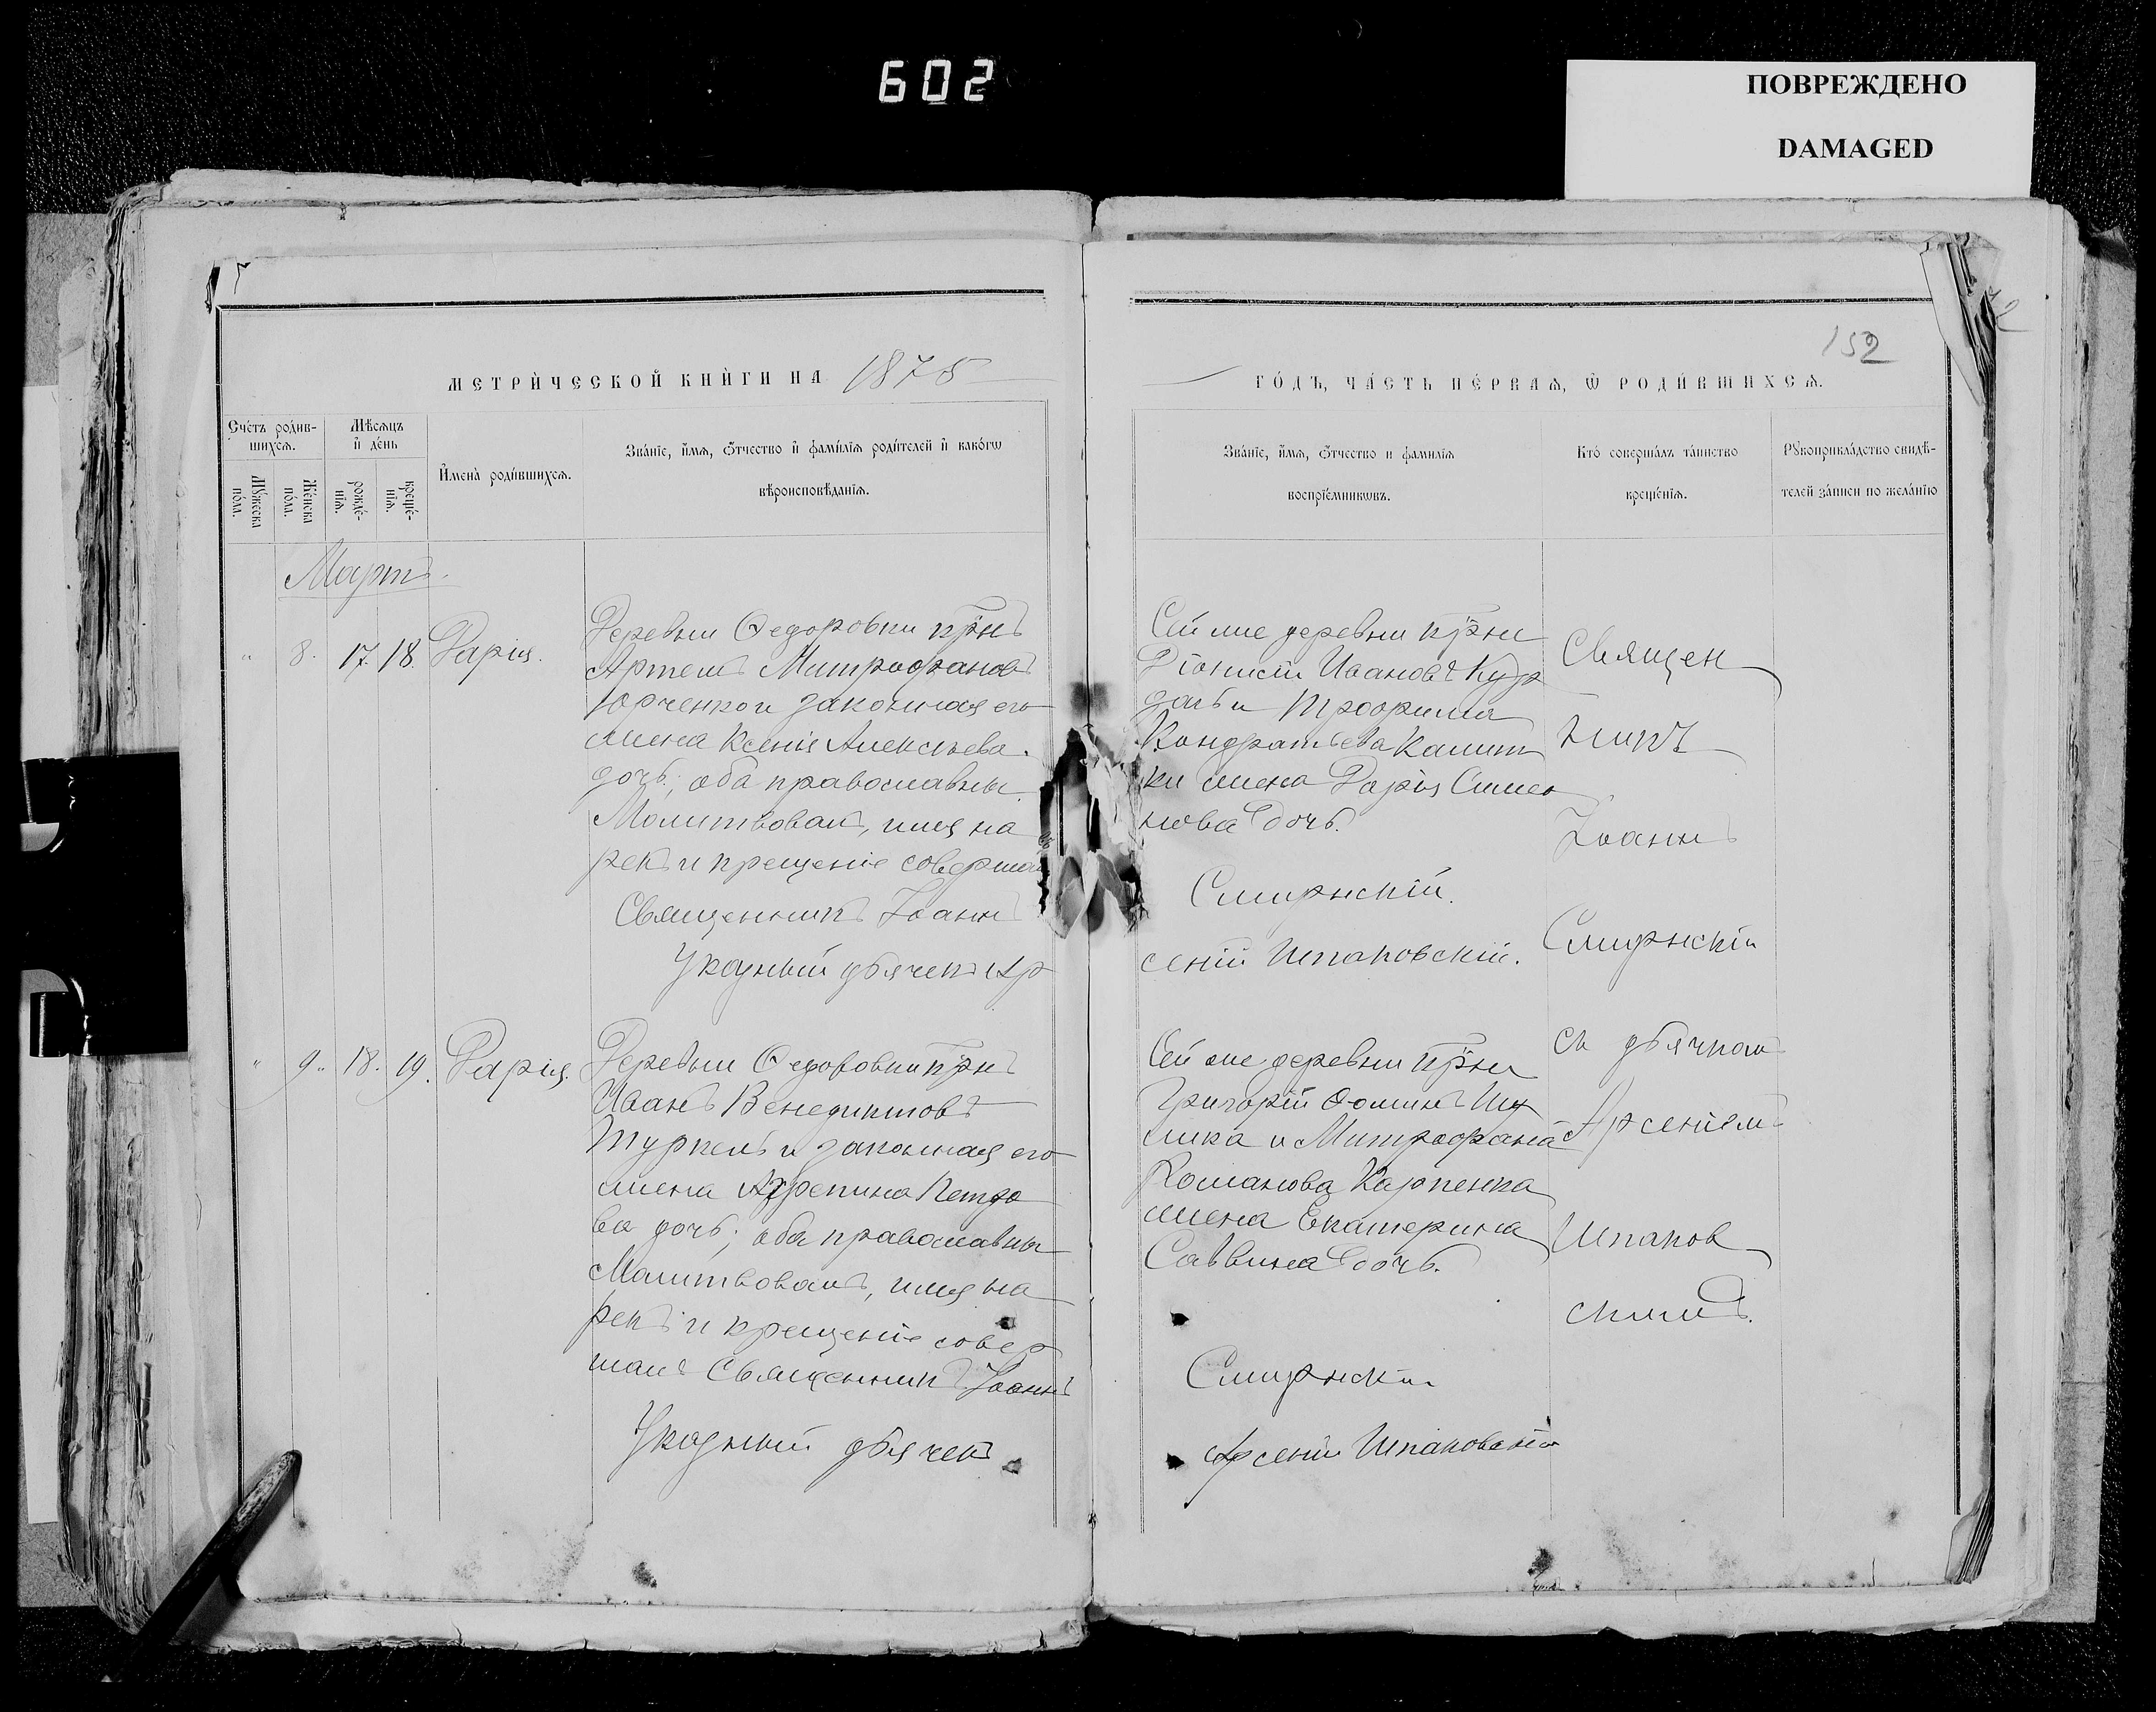 602
ПОВРЕЖДЕНО
DAMAGED
152
МЕТРИ́ЧЕСКОЙ КНИ́ГИ НА 1875
ГО́ДЪ, ЧА́СТЬ ПЕ́РВАѦ, Ѡ҆ РОДИ́ВШИХСѦ.
Сче́тъ роди́в-
шихсѧ.
Мꙋ́жеска по́ла.
Же́нска по́ла.
Мѣ́сѧцъ
и҆ де́нь
рожде́-
нїѧ.
креще́-
нїѧ.
И҆мена̀ роди́вшихсѧ.
Зва́нїе, и҆́мѧ, ѻ҆́тчество и҆ фами́лїѧ роди́телей и҆ како́гѡ
вѣроисповѣ́данїѧ.
Зва́нїе, и҆́мѧ, ѻ҆́тчество и фами́лїѧ
воспрїе́мникѡвъ.
Кто̀ соверша́лъ та́инство
креще́нїѧ.
Рꙋкоприкла́дство свидѣ́-
телей за́писи по жела́нїю
Мартъ.
" 8. 17. 18. Дарія.
Деревни Ѳедоровки крнъ
Артемъ Митрофановъ
Юрченко и законная его
жена Ксенія Алексѣева
дочь; оба православны.
Молитвовалъ, имя на
рекъ и крещеніе совершалъ
Священникъ Іоаннъ
Указный дьячекъ Ар
Сей же деревни крне
Діонисій Ивановъ Кур
дачь и Трофима
Кондратьева Калит
ки жена Дарія Симео
нова дочь.
Смирнскій.
сеній Шпаковскій.
Священ
никъ
Іоаннъ
Смирнскій
съ дьячкомъ
Арсеніемъ
Шпаков
скимъ.
" 9. 18. 19. Дарія.
Деревни Ѳедоровки крнъ
Иванъ Венедиктовъ
Туркель и законная его
жена Агрепина Петро
ва дочь; оба православны
Молитвовалъ, имя на
рекъ и крещеніе совер
шалъ Священникъ Іоаннъ
Указный дьячекъ
Сей же деревни крне
Григорій Ѳоминъ
и Митрофана
Романова Карпенка
жена Екатерина
Саввина дочь.
Смирнскій
Арсеній Шпаковскій